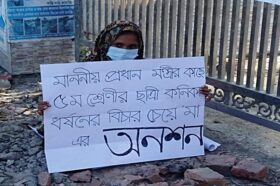 মাননীয় প্রধান মন্ত্রির কাছে
৫ম শ্রেণীর ছাত্রী কনিকা
ধর্ষনের বিচার চেয়ে মা
এর অনশন